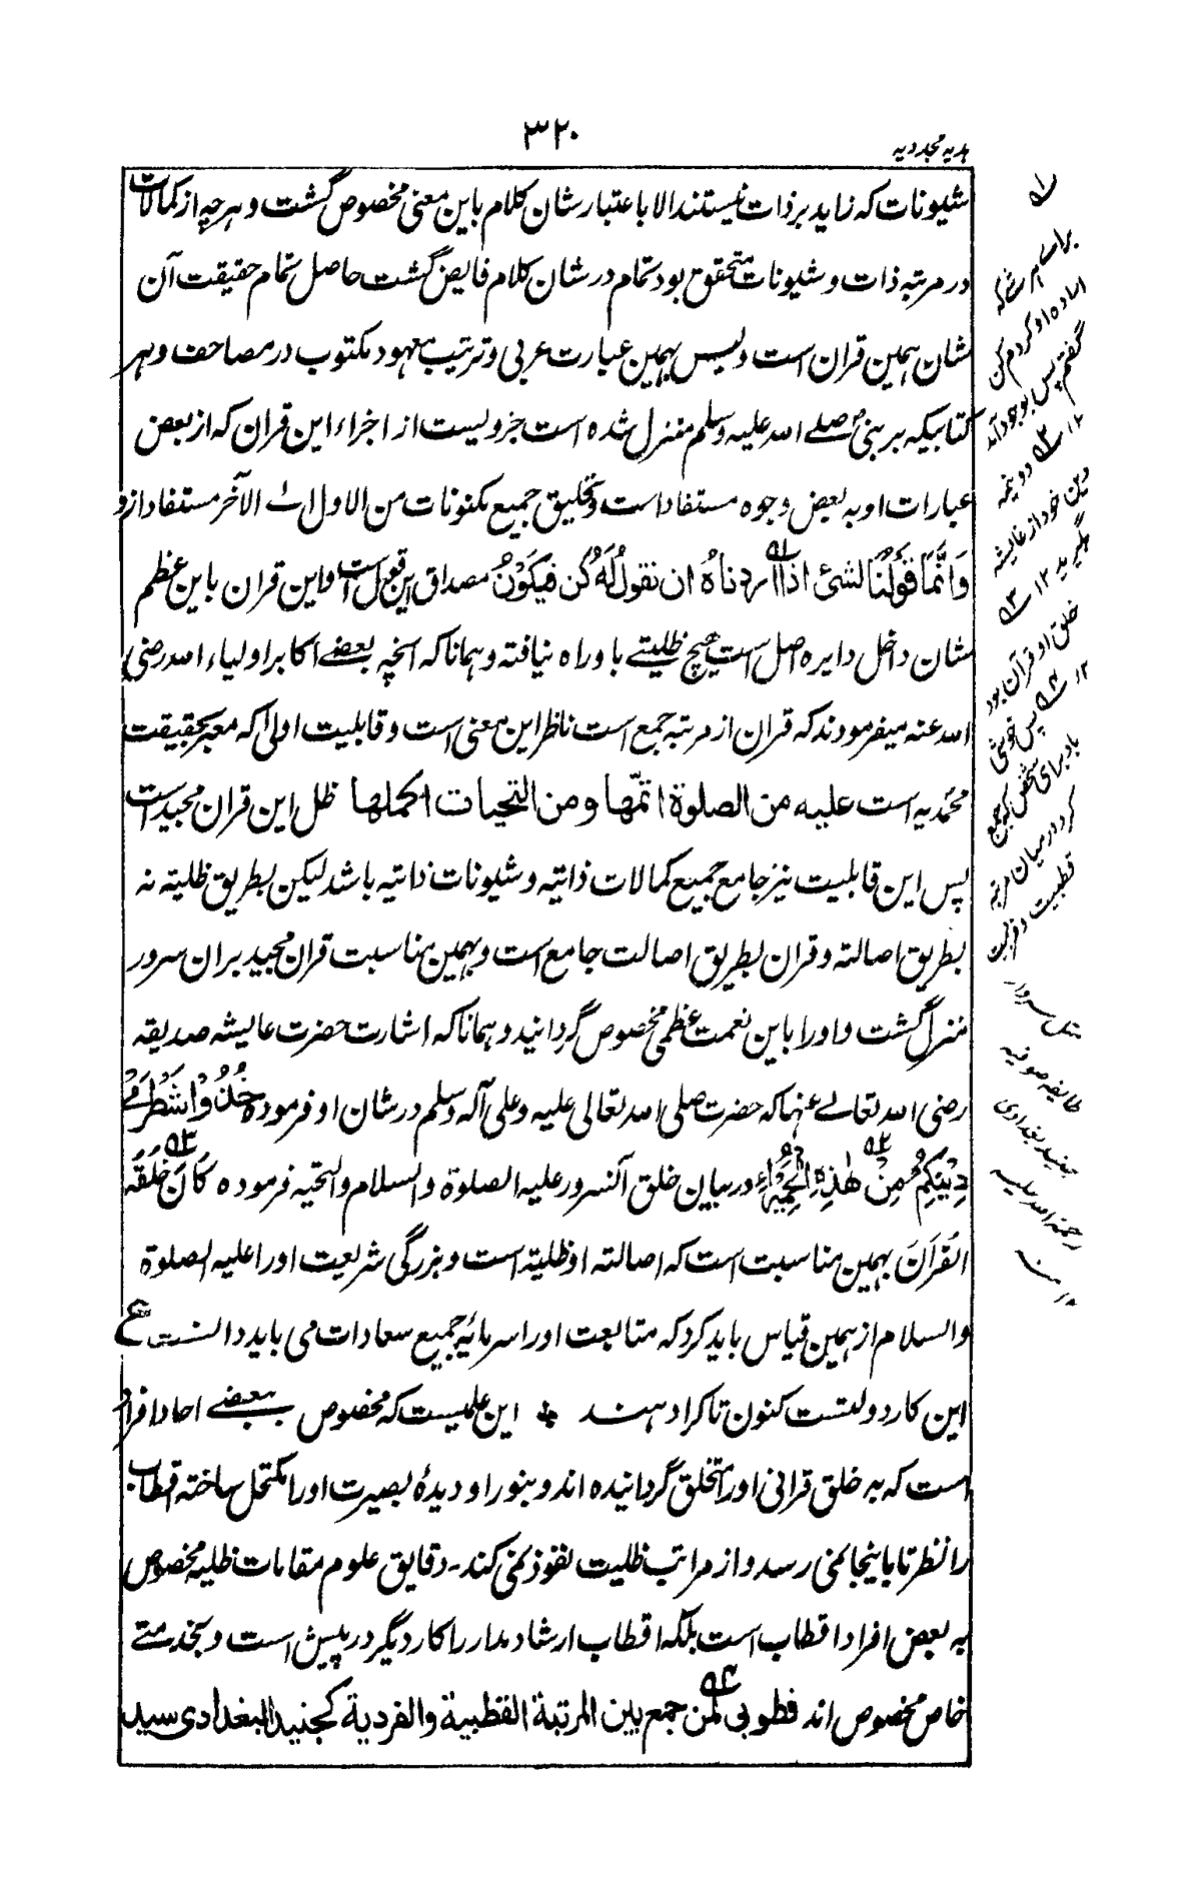 ۳۲۰
ہدیہ مجددیہ
شیونات کہ زاید بر ذات نیستند الا باعتبار شان کلام باین معنی مخصوص گشت و ہرچہ از کمالات
در مرتبہ ذات و شیونات متحقق بود تمام در شان کلام فایض گشت حاصل تمام حقیقت آن
شان ہمین قران است و لیس بہمین عبارت عربی و ترتیب معہود مکتوب در مصاحف و ہر
کتابیکہ بر نبی صلے اللہ علیہ وسلم منزل شدہ است جزویست از اجزاء این قران کہ از بعض
عبارات او بہ بعض وجوہ مستفاد است و تخلیق جمیع مکنونات من الاول الے الآخر مستفاد از و
وَاِنَّمَا قَوْلُنَا لشئ اذا اردناہُ ان نقولُ لَهُ كُن فيَكَونُ مصداق این قول است و این قران باین عظم
شان داخل دایرہ اصل است ہیچ ظلیتے باو راہ نیافتہ و ہمانا کہ آنچہ بعضے اکابر اولیاء اللہ رضی
اللہ عنہ میفرمودند کہ قران از مرتبہ جمع است ناظر این معنی است و قابلیت اولیٰ کہ معبر بحقیقت
محمدیہ است علیہ من الصلوة اتمّها ومن التحیات اکملہا ظل این قران مجید است
پس این قابلیت نیز جامع جمیع کمالات ذاتیہ و شیونات ذاتیہ باشد لیکن بطریق ظلیتہ نہ
بطریق اصالتہ و قران بطریق اصالت جامع است و بہمین مناسبت قران مجید بران سرور
منزل گشت و او را باین نعمت عظمیٰ مخصوص گردانید و ہمانا کہ اشارت حضرت عایشہ صدیقہ
رضی اللہ تعالے عنہا کہ حضرت صلی اللہ تعالی علیہ وعلی آلہ وسلم در شان او فرمودہ خُذُوْا شَطْرَ
دِيْنِكُمْ مِنْ هٰذِهِ الْحُمَيْرَاءِ در بیان خلق آنسرور علیہ الصلوة والسلام والتحیہ فرمودہ كَانَ خُلُقُهُ
القُرآنَ بہمین مناسبت است کہ اصالتہ او ظلیتہ است و بزرگی شریعت او را علیہ الصلوة
والسلام از ہمین قیاس باید کرد کہ متابعت او را سرمایۂ جمیع سعادات می باید دانست ع
این کار دولتست کنون تا کرا دہند ؞ این علمیست کہ مخصوص بعضے احاد افراد
است کہ بہ خلق قرانی او را متخلق گردانیدہ اند و بنور او دیدۂ بصیرت او را مکتحل ساختہ اقطاب
را نظر تا باینجا نمی رسد و از مراتب ظلیت نفوذ نمی کند ۔ دقایق علوم مقامات ظلیہ مخصوص
بہ بعض افراد اقطاب است بلکہ اقطاب ارشاد مدار را کار دیگر در پیش است و بخدمتے
خاص مخصوص اند فطوبی لمن جمع بین المرتبة القطبیة والفردیة کجنید البغدادی سید
۱ه
برای ہر شے کہ
ارادہ او کردم کن
گفتم پس بوجود آمد
۱۲ ۲ه دو نیمہ
دین خود از عایشہ
بگیرید ۱۲ ۳ه
خلق او قرآن بود
۱۲ ۴ه پس خوشی
باد برای شخص کہ جمع
کرد درمیان مرتبہ
قطبیت و فردیت
مثل سردار
طایفہ صوفیہ
جنید بغدادی
رحمۃ اللہ علیہ
۱۲ منہ